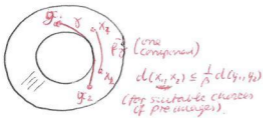 γ
x₁
x₂
(one
component)
d(x₁, x₂) ≤ 1/5 d(y₁, y₂)
(for suitable choices
of pre images).